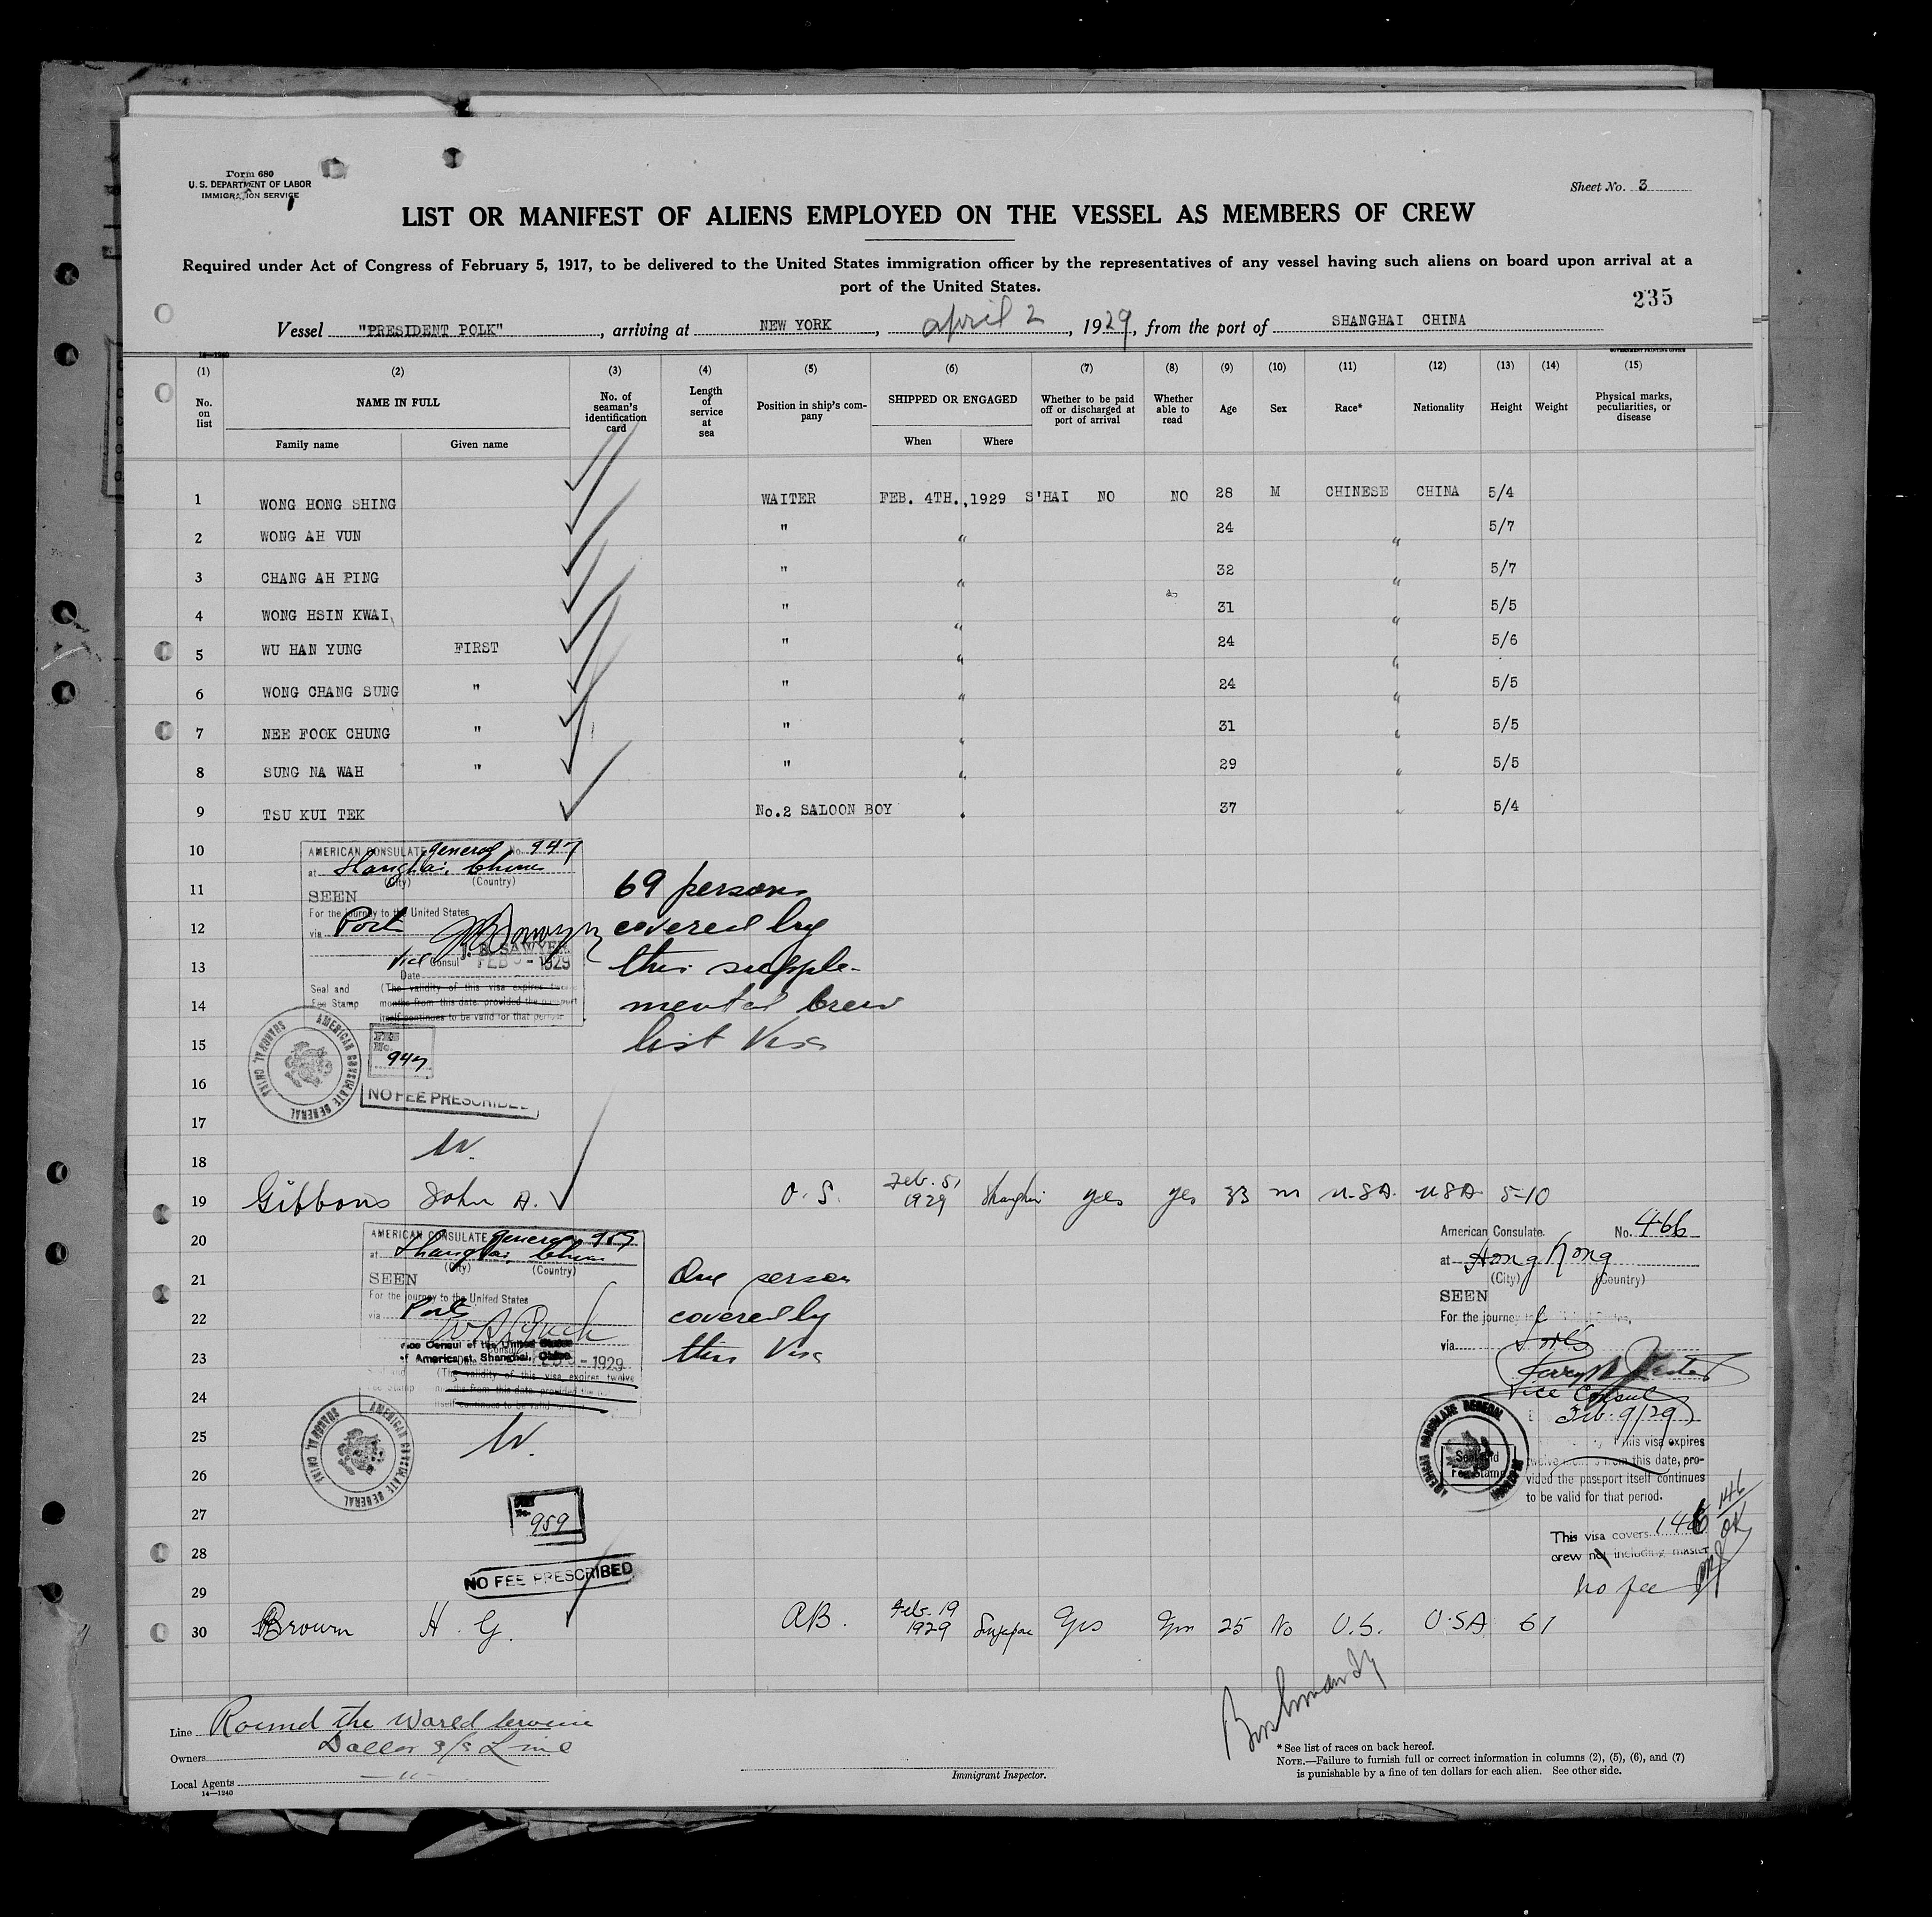 Form 680
U. S. DEPARTMENT OF LABOR
IMMIGRATION SERVICE
Sheet No. 3
LIST OR MANIFEST OF ALIENS EMPLOYED ON THE VESSEL AS MEMBERS OF CREW
Required under Act of Congress of February 5, 1917, to be delivered to the United States immigration officer by the representatives of any vessel having such aliens on board upon arrival at a
port of the United States.
235
Vessel "PRESIDENT POLK", arriving at NEW YORK, april 2, 1929, from the port of SHANGHAI CHINA
14—1240 GOVERNMENT PRINTING OFFICE
(1) (2) (3) (4) (5) (6) (7) (8) (9) (10) (11) (12) (13) (14) (15)
No. on list NAME IN FULL No. of seaman's identification card Length of service at sea Position in ship's company SHIPPED OR ENGAGED Whether to be paid off or discharged at port of arrival Whether able to read Age Sex Race* Nationality Height Weight Physical marks, peculiarities, or disease
Family name Given name When Where
1 WONG HONG SHING WAITER FEB. 4TH.,1929 S'HAI NO NO 28 M CHINESE CHINA 5/4
2 WONG AH VUN " " 24 " 5/7
3 CHANG AH PING " " 32 " 5/7
4 WONG HSIN KWAI " " 31 " 5/5
5 WU HAN YUNG FIRST " " 24 " 5/6
6 WONG CHANG SUNG " " " 24 " 5/5
7 NEE FOOK CHUNG " " " 31 " 5/5
8 SUNG NA WAH " " " 29 " 5/5
9 TSU KUI TEK No.2 SALOON BOY " 37 " 5/4
10
AMERICAN CONSULATE General No. 947
at Shanghai, China
(City) (Country)
11
SEEN
69 persons
For the journey to the United States
12
via Ports
covered by
J. B. SAWYER
13
Vice Consul
this supple-
Date FEB - 1929
Seal and Fee Stamp (The validity of this visa expires twelve
14
months from this date provided the passport
mental Crew
itself continues to be valid for that period
15
list Visa
AMERICAN CONSULATE GENERAL SHANGHAI, CHINA
FEE No. 947
16
NO FEE PRESCRIBED
17
18
W.
19 Gibbons John A. O. S. Feb. 5, 1929 Shanghai yes yes 33 m U.S.A. USA 5-10
20
AMERICAN CONSULATE General 959
at Shanghai, China
(City) (Country)
21
SEEN
One person
For the journey to the United States
22
via Ports
covered by
Vice Consul of the United States
of America at Shanghai, China
23
- 1929
this Visa
(The validity of this visa expires twelve
24
months from this date, provided the
itself continues to be valid
25
W.
26
AMERICAN CONSULATE GENERAL SHANGHAI, CHINA
American Consulate No. 466
at Hong Kong
(City) (Country)
SEEN
For the journey
via Ports
Vice Consul
Feb. 9/29
this visa expires
twelve months from this date, pro-
vided the passport itself continues
to be valid for that period.
AMERICAN CONSULATE GENERAL HONGKONG
Seal and
Fee Stamp
27
FEE No. 959
This visa covers 146
146
OK
28
crew not including master
NO FEE PRESCRIBED
29
no fee
30 Brown H. G. AB. Feb. 19 1929 Singapore Yes Yes 25 No U.S. U.S.A 61
Line Round the World Service
Owners Dollar s/s Line
Local Agents — " —
14—1240
Immigrant Inspector.
* See list of races on back hereof.
NOTE.—Failure to furnish full or correct information in columns (2), (5), (6), and (7)
is punishable by a fine of ten dollars for each alien. See other side.